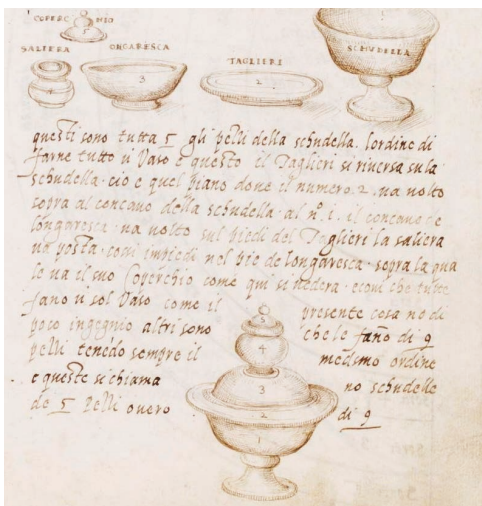 COPERCHIO
5
SALIERA
ONGARESCA
TAGLIERI
SCHUDELLA
4
3
2
questi sono tutta 5 gli pezzi della schudella. l'ordine di
farne tutto ū Vaso è questo il Taglieri si riuersa su la
schudella. cio è quel piano doue il numero. 2. ua uolto
sopra al concauo della schudella. al nº. 1. il concauo
longaresca. ua uolto sul piedi del Taglieri la saliera
ua posta. cosi impiedi nel pie de longaresca. sopra la qua
le ua il suo Coperchio come qui si uedera. ecoui che tutte
fano ū sol Vaso come il presente cosa no di
poco ingegnio altri sono che le fāno di 9
pezzi tenēdo sempre il medsmo ordine
e queste si chiama no schudelle
de 5 Pezzi ouero di 9
5
4
3
2
1